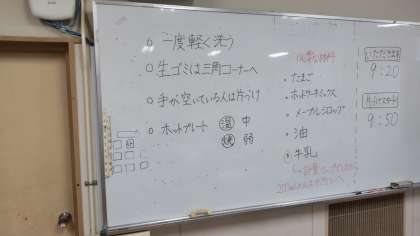 ○ 一度軽く洗う
○ 生ゴミは三角コーナーへ
○ 手が空いている人は片づけ
○ ホットプレート 温 中
焼 弱
・たまご
・ホットケーキミックス
・メープルシロップ
・油
・牛乳
いただきます
9:20
片づけスタート
9:50